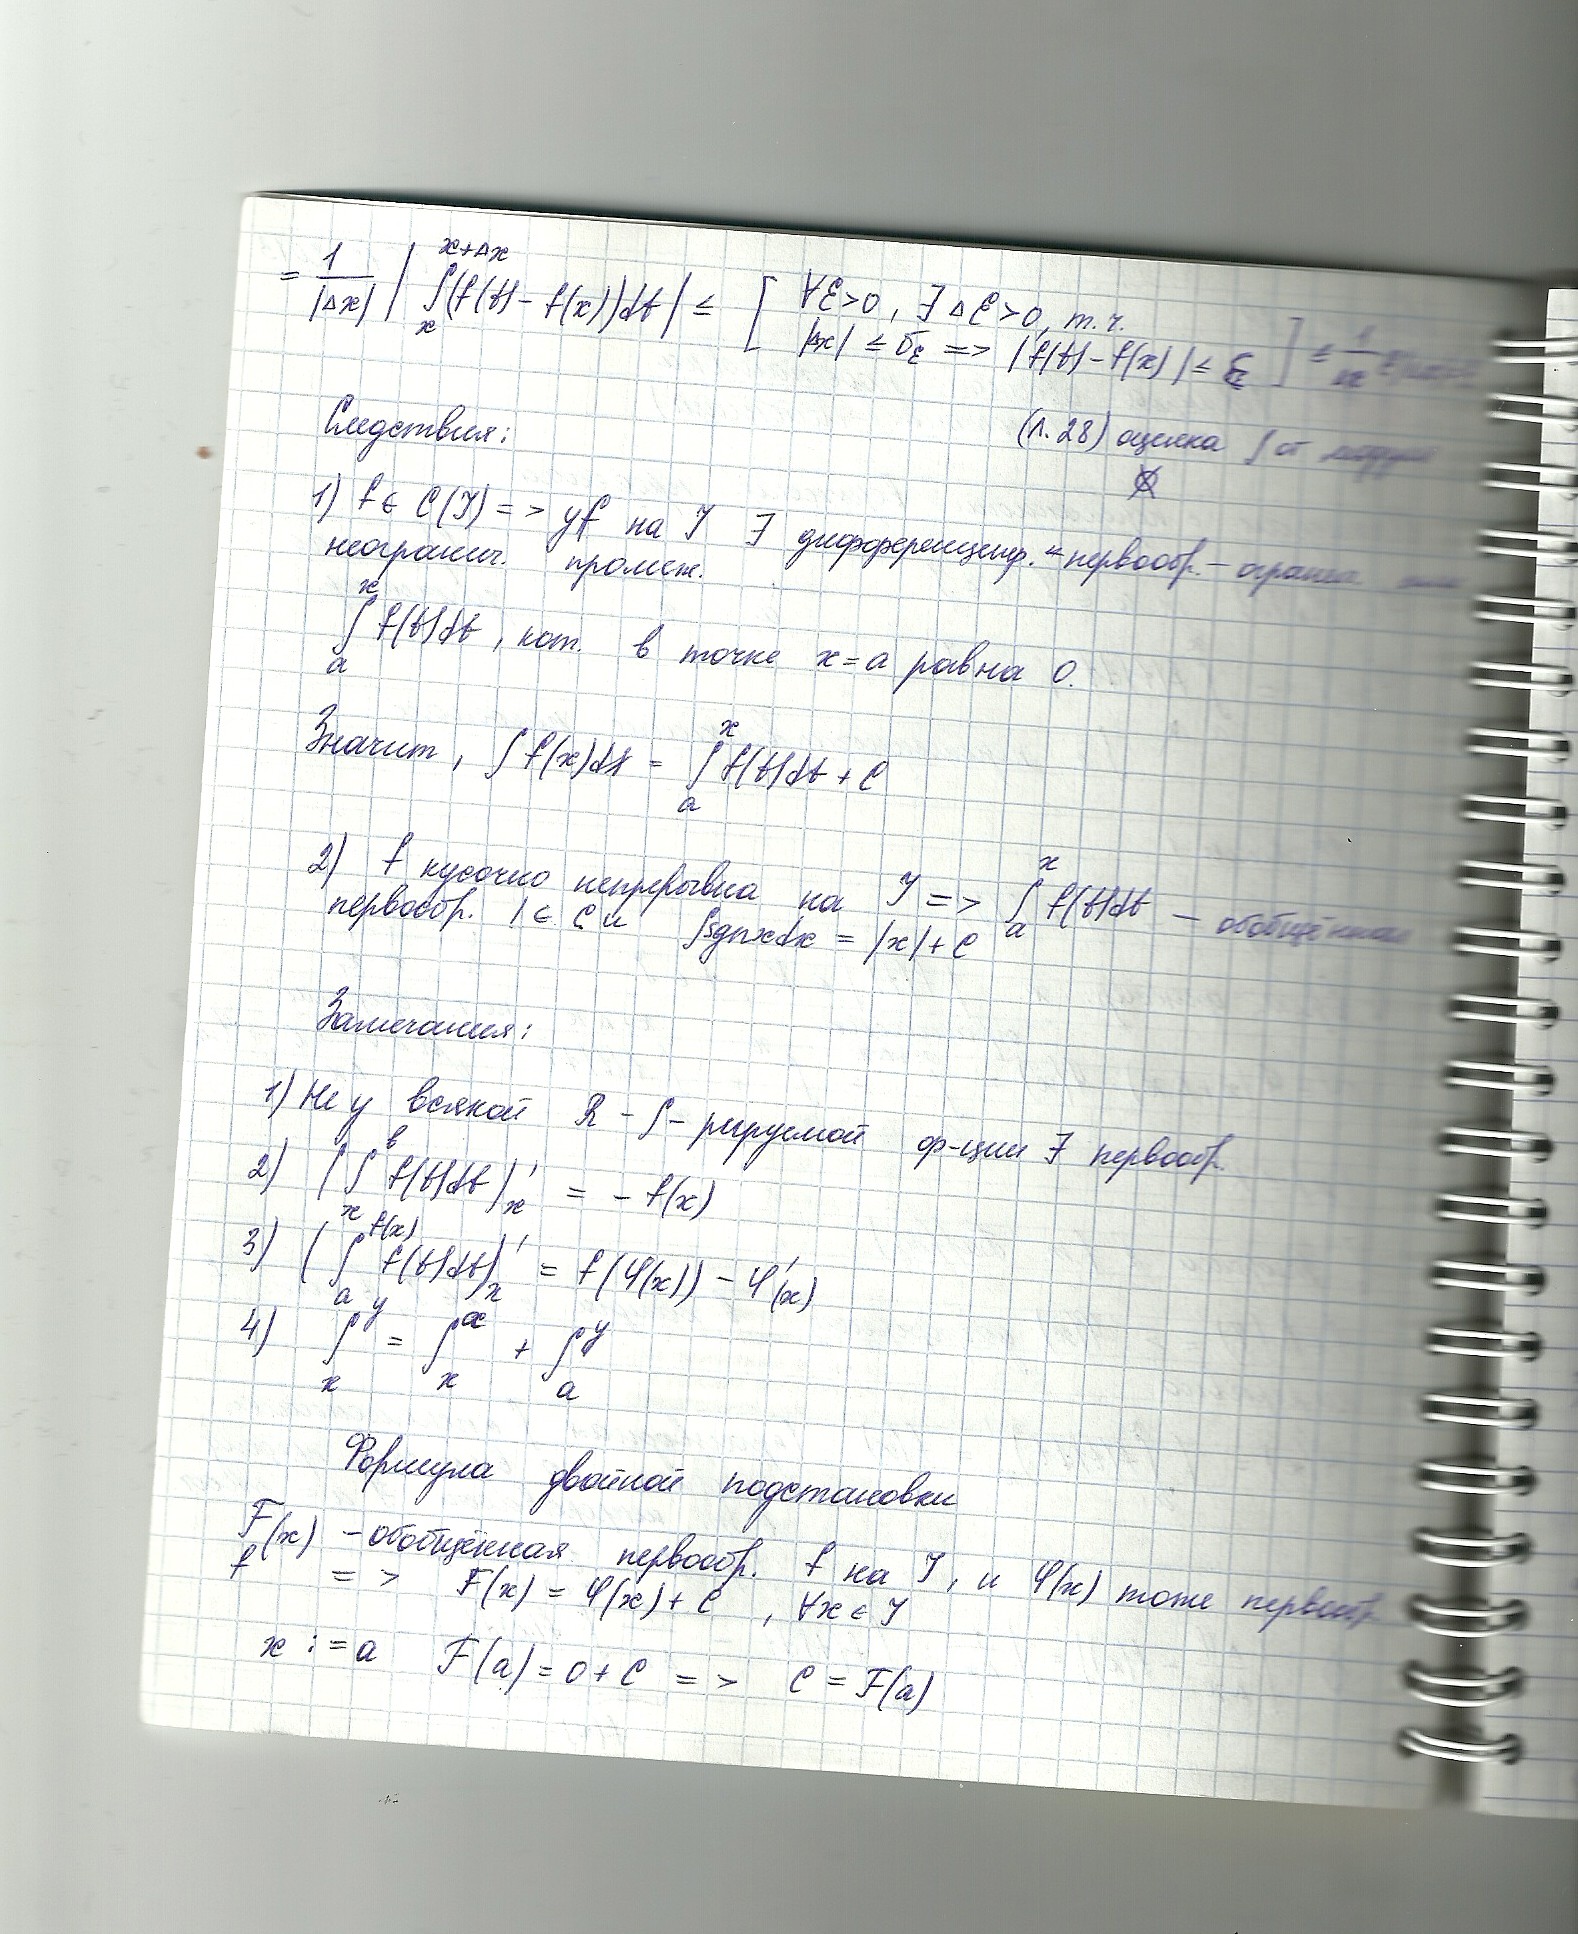 = 1/|Δx| | ∫_x^{x+Δx} (f(t) - f(x))dt | ≤ [ ∀ε>0, ∃ Δε>0, т.ч.
|Δx| ≤ δ_ε => |f(t) - f(x)| ≤ ε ] ≤ 1/Δx
Следствия:
(Л.28) оценка ∫ от модуля
1) f ∈ C(J) => у f на J ∃ дифференцир. первообр. - огранич.
неогранич. промеж.
∫_a^x f(t)dt, кот. в точке x=a равна 0.
Значит, ∫ f(x)dx = ∫_a^x f(t)dt + C
2) f кусочно непрерывна на J => ∫_a^x f(t)dt — обобщённая
первообр. ∫sgnxdx = |x| + C
Замечания:
1) Не у всякой R - ∫ - рируемой ф-ции ∃ первообр.
2) (∫_x^b f(t)dt)'_x = - f(x)
3) (∫_a^{f(x)} f(t)dt)'_x = f(φ(x)) - φ'(x)
4) ∫_x^y = ∫_x^a + ∫_a^y
Формула двойной подстановки
F(x) - обобщённая первообр. f на J, и φ(x) тоже первообр.
f => F(x) = φ(x) + C, ∀x ∈ J
x := a F(a) = 0 + C => C = F(a)